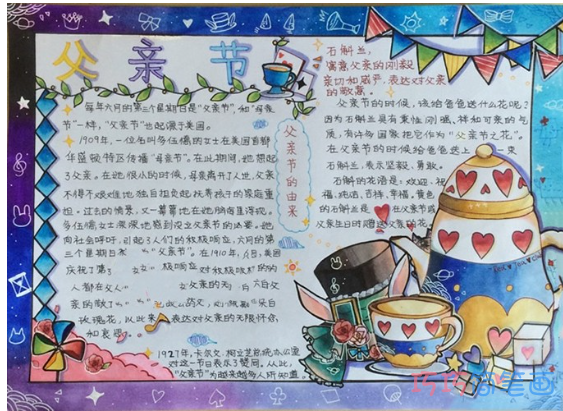 父亲节
每年六月的第三个星期日是"父亲节",和"母亲
节"一样,"父亲节"也起源于美国。
1909年,一位名叫多伍德的女士在美国首都
华盛顿特区传播"母亲节"。在此期间,她想起
了父亲。在她很小的时候,母亲离开了人世,父亲
不得不艰难地独自担负起抚养孩子的家庭重
担。过去的情景,又一幕幕地在她脑海里浮现,
多伍德女士深深地感到应立父亲节的必要。她
向社会呼吁,引起了人们的积极响应,六月的第
三个星期日为"父亲节"。在1910年,八日,美国
庆祝了第
人都在父人
父亲的无 有六白父
亲的
玫瑰花,以此来 表达对父亲的无限怀念
和哀思。
1927年,
对这一节日表示了赞同。从此,
"父亲节"为越来越多人所知道。
父亲节的由来
石斛兰,
寓意父亲的刚毅
亲切和威严,表达对父亲
的敬意。
父亲节的时候,该给爸爸送什么花呢?
因为石斛兰具有秉性刚强,祥和可亲的气
质,有许多国家把它作为"父亲节之花"。
在父亲节的时候给爸爸送上一束
石斛兰,表示坚毅、勇敢。
石斛的花语是:欢迎、祝
福、纯洁、吉祥、幸福。黄色
的石斛兰是 在父亲节或
父亲生日时赠送父亲的花。
巧巧简笔画